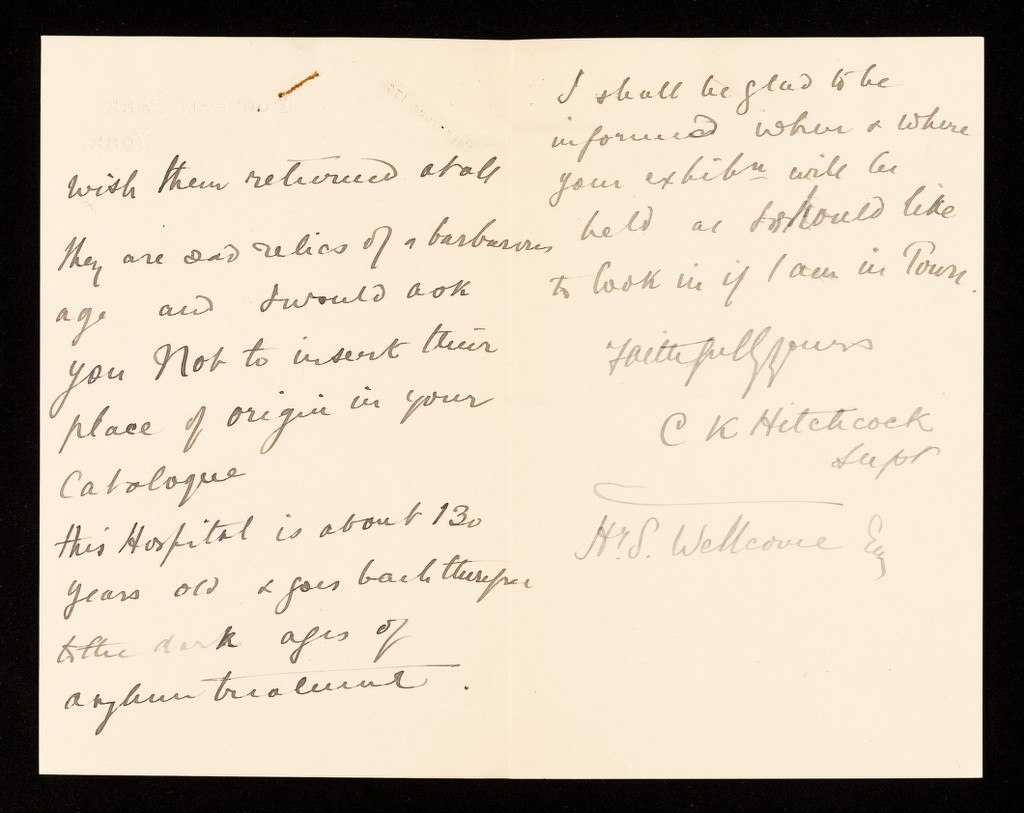 wish them returned at all
they are sad relics of a barbarous
age and I would ask
you Not to insert their
place of origin in your
Catalogue
this Hospital is about 130
years old & goes back therefore
to the dark ages of
asylum treatment.
I shall be glad to be
informed when & where
your exhibn will be
held as I should like
to look in if I am in Town.
Faithfully yours
C K Hitchcock
Supt
Hy. S. Wellcome Esq